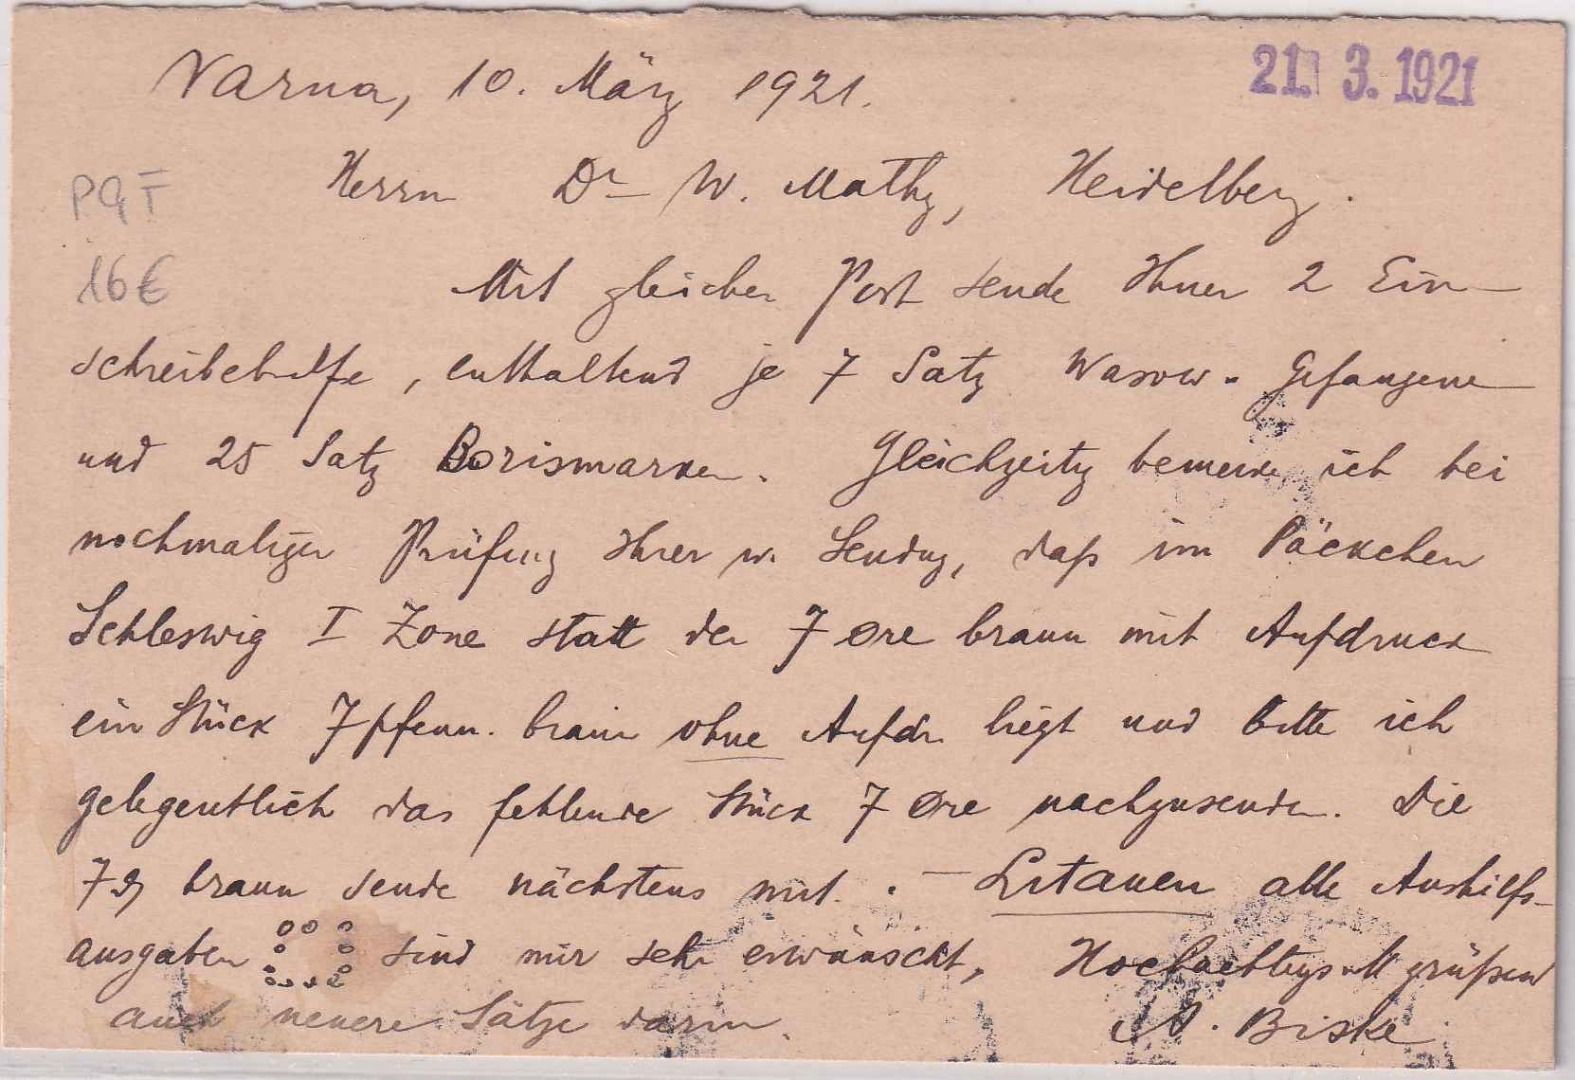 Varna, 10. März 1921.
21. 3. 1921
Herrn Dr W. Mathy, Heidelberg.
PGT
16€
Mit gleicher Post sende Ihnen 2 Ein-
schreibebriefe, enthaltend je 7 Satz Gefangene
und 25 Satz Borismarken. Gleichzeitig bemerke ich bei
nochmaliger Prüfung Ihrer w. Sendung, daß im Päckchen
Schleswig I Zone statt der 7 Øre braun mit Aufdruck
ein Stück 7 pfenn. braun ohne Aufdr. liegt und bitte ich
gelegentlich das fehlende Stück 7 Øre nachzusenden. Die
7 ₰ braun sende nächstens mit. - Litauen alle Aushilfs-
ausgaben sind mir sehr erwünscht, Hochachtungsvoll grüßend
auch neuere Sätze darin. A. Biske